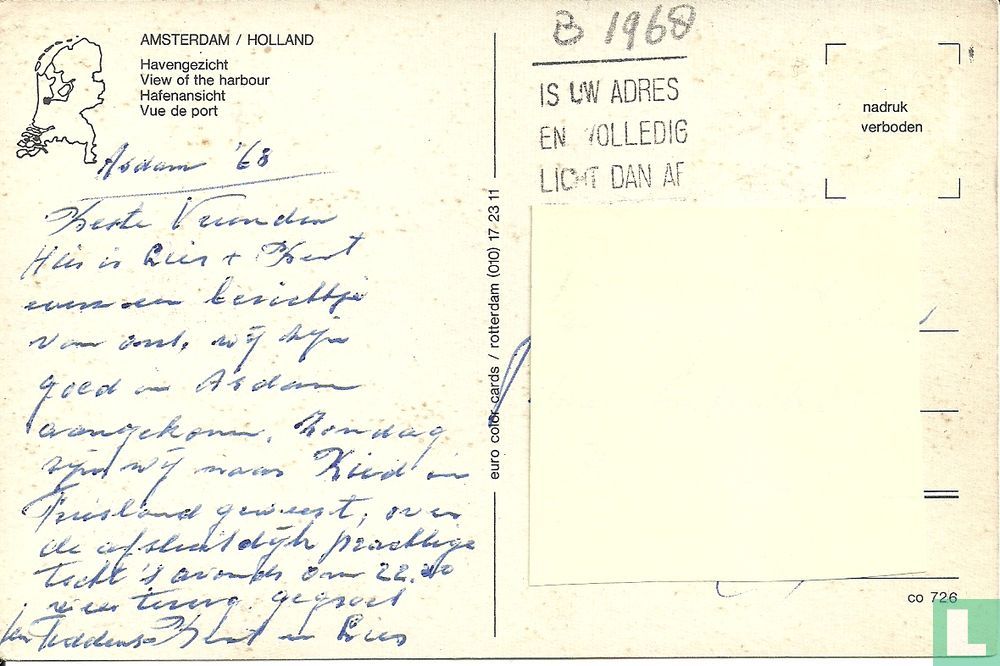 AMSTERDAM / HOLLAND
Havengezicht
View of the harbour
Hafenansicht
Vue de port
Asdam '68
Beste Vrienden
Hier is Lies + Bert
even een berichtje
van ons, wij zijn
goed in Asdam
aangekomen, Zondag
zijn wij naar in
Friesland geweest, over
de afsluitdijk prachtige
tocht 's avonds om 22.
weer terug. gegroet
Bert en Lies
B 1968
IS UW ADRES
EN VOLLEDIG
LICHT DAN AF
nadruk
verboden
euro color cards / rotterdam (010) 17 23 11
co 726
L